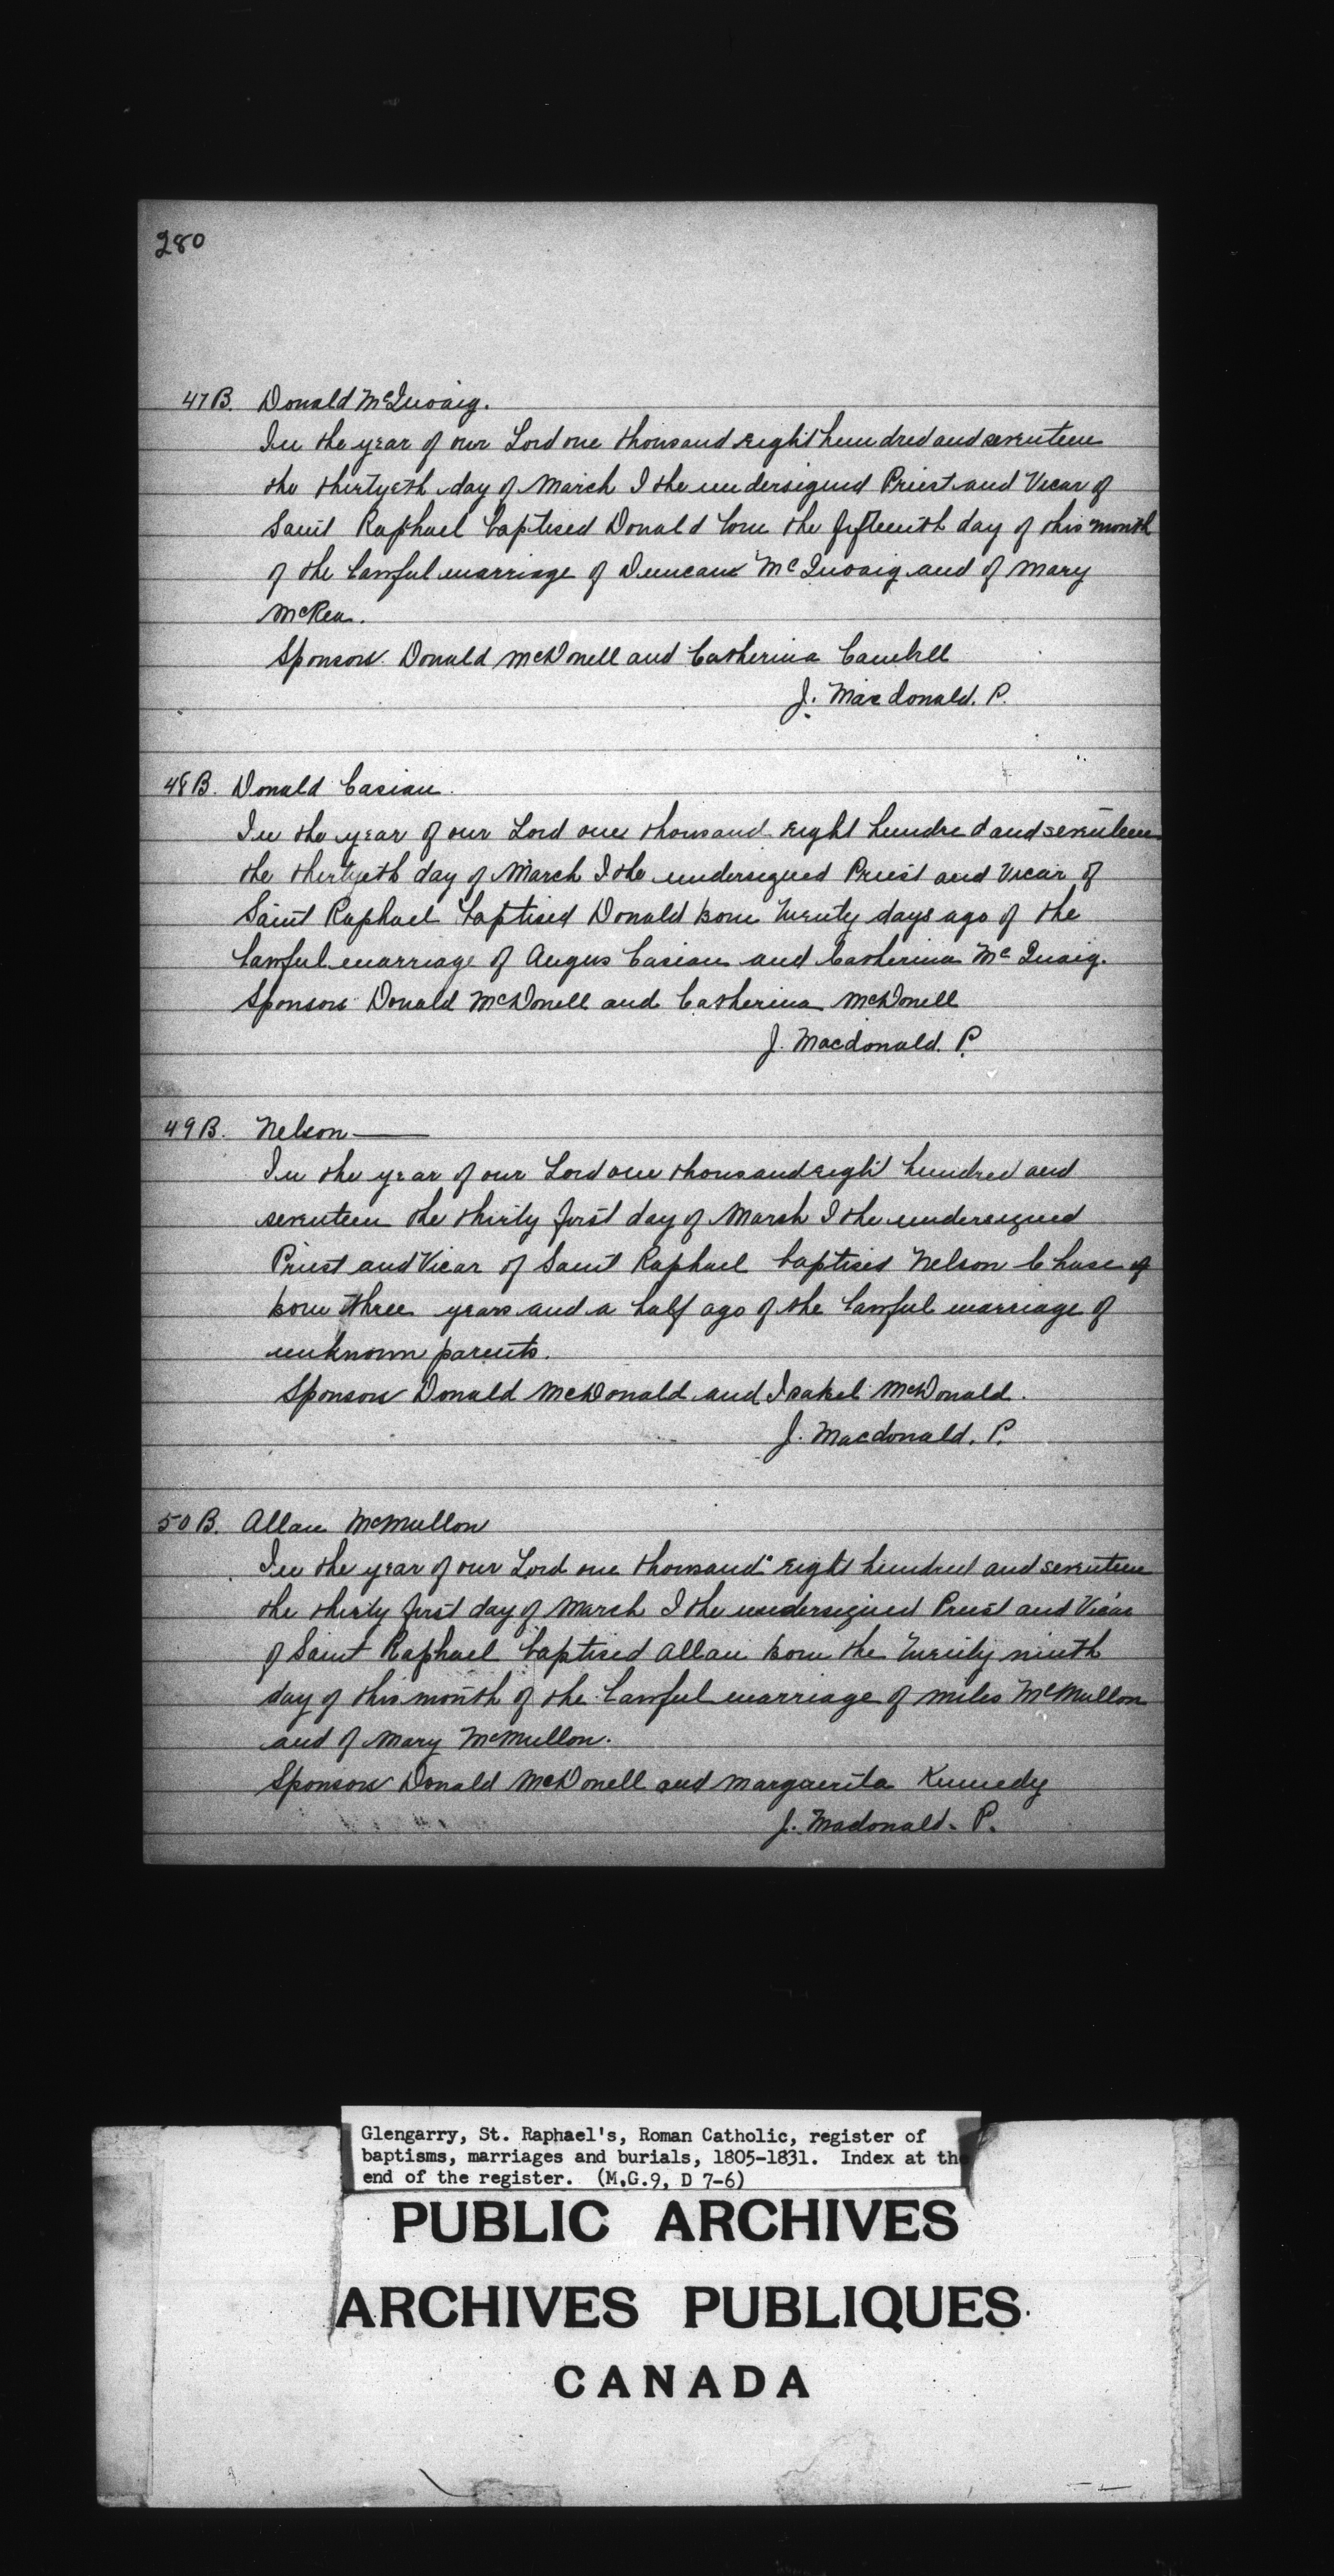 280
47B. Donald McQuaig.
In the year of our Lord one thousand eight hundred and seventeen
the thirtyeth day of March I the undersigned Priest and Vicar of
Saint Raphael baptised Donald born the fifteenth day of this month
of the lawful marriage of Duncan McQuaig and of Mary
McRea.
Sponsors Donald McDonell and Catherina Cambell
J. Macdonald. P.
48B. Donald Casian.
In the year of our Lord one thousand eight hundred and seventeen
the thirtyeth day of March I the undersigned Priest and Vicar of
Saint Raphael baptised Donald born twenty days ago of the
lawful marriage of Angus Casian and Catherina McQuaig.
Sponsors Donald McDonell and Catherina McDonell
J. Macdonald. P.
49B. Nelson —
In the year of our Lord one thousand eight hundred and
seventeen the thirty first day of March I the undersigned
Priest and Vicar of Saint Raphael baptised Nelson Chase of
born three years and a half ago of the lawful marriage of
unknown parents.
Sponsors Donald McDonald and Isabel McDonald.
J. Macdonald. P.
50B. Allan McMullon
In the year of our Lord one thousand eight hundred and seventeen
the thirty first day of March I the undersigned Priest and Vicar
of Saint Raphael baptised Allan born the twenty ninth
day of this month of the lawful marriage of Miles McMullon
and of Mary McMullon.
Sponsors Donald McDonell and Marguerita Kennedy
J. Madonald. P.
Glengarry, St. Raphael's, Roman Catholic, register of
baptisms, marriages and burials, 1805-1831. Index at the
end of the register. (M.G.9, D 7-6)
PUBLIC ARCHIVES
ARCHIVES PUBLIQUES
CANADA